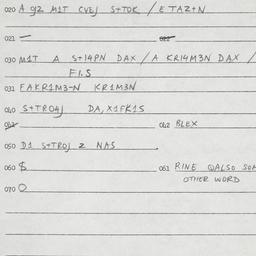 020 A g12 M1T CVEJ S+TOK / E TAZ+N
021 –
022
030 M1T A S+14PN DAX / A KR14M3N DAX /
FI.S
031 FAKR1M3-N KR1M3N
040 S+TRO4J DA,X1FK1S
042 BLEX
050 D1 S+TROJ 2 NAS
060 $
061 RINE QALSO SOM
OTHER WORD
070 O